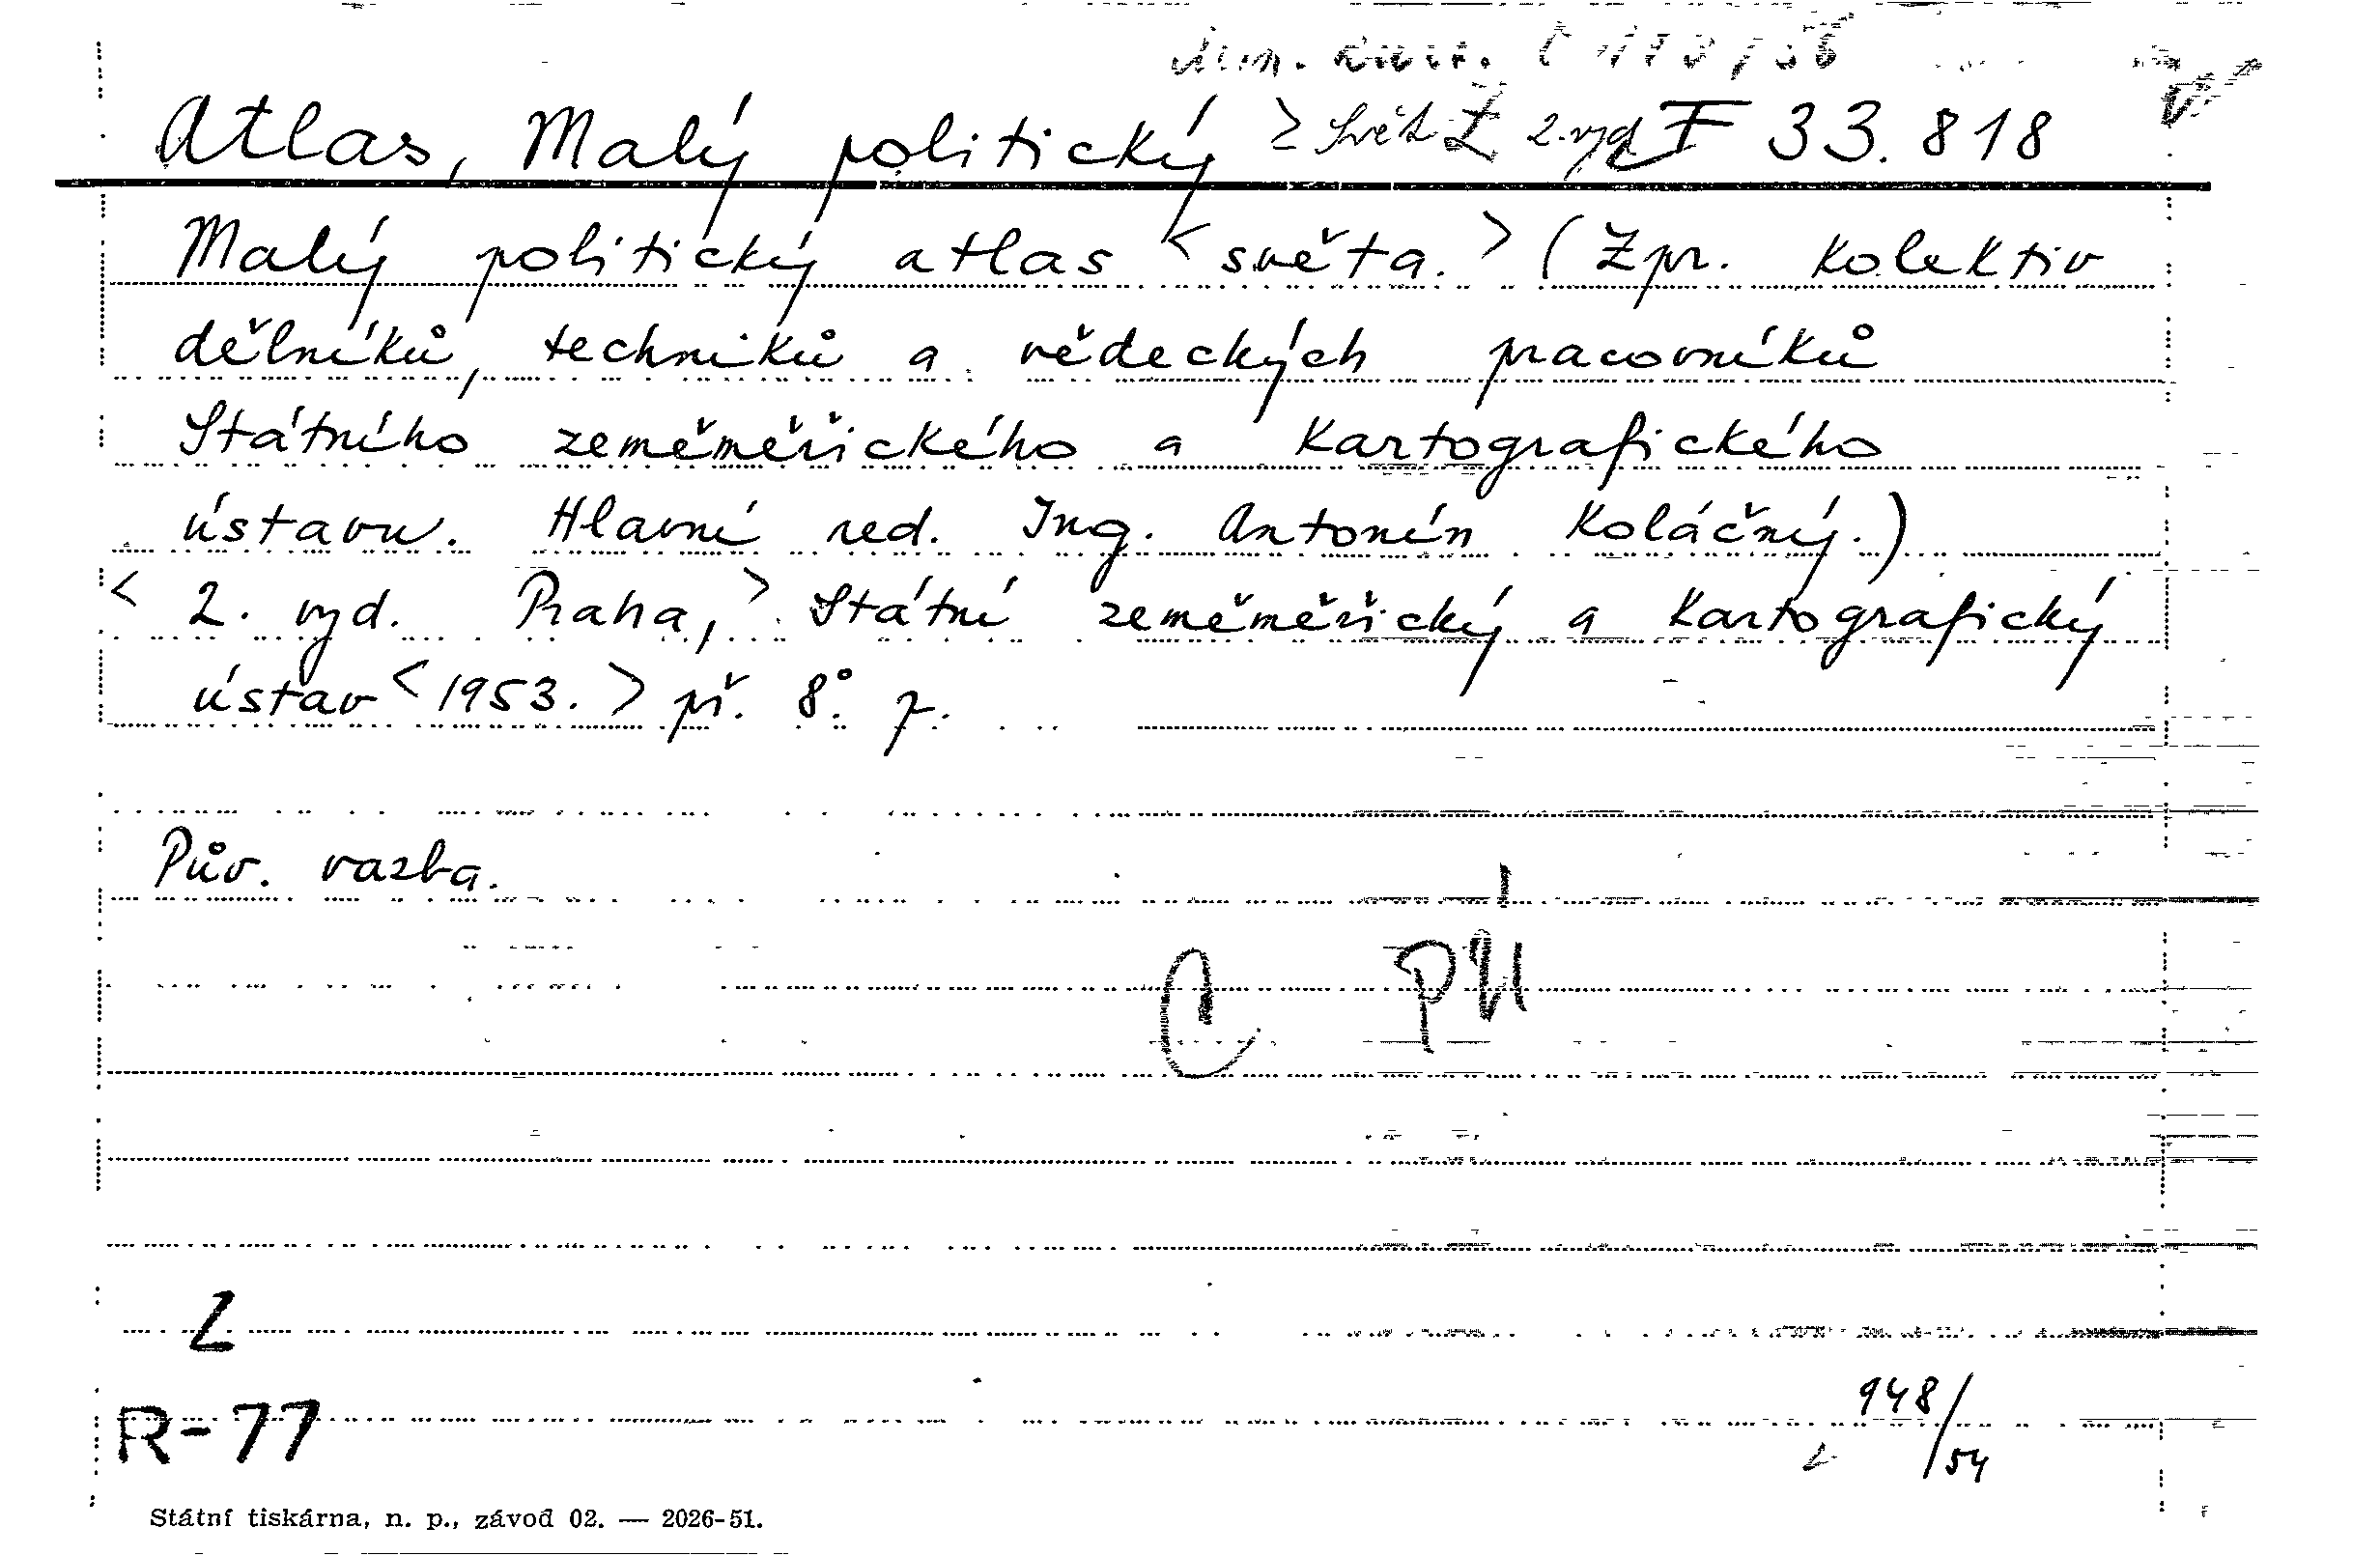 Atlas, Malý politický > Svět Z 2. vyd F 33.818
Malý politický atlas <světa.> (Zpr. kolektiv
dělníků, techniků a vědeckých pracovníků
Státního zeměměřického a kartografického
ústavu. Hlavní red. Ing. Antonín Koláčný.)
<2. vyd. Praha,> Státní zeměměřický a kartografický
ústav <1953.> př. 8° p.
Pův. vazba.
C PÚ
Z
R-77
948/54
Státní tiskárna, n. p., závod 02. — 2026-51.